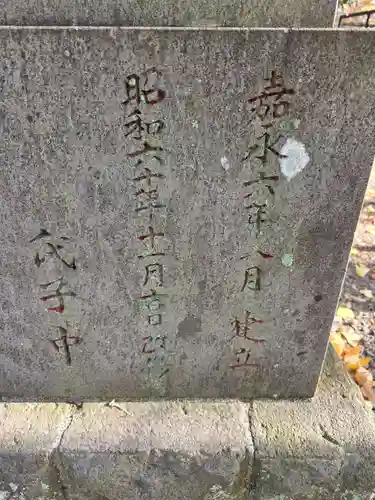 嘉永六年八月建立
昭和六十年十一月吉日改修
氏子中